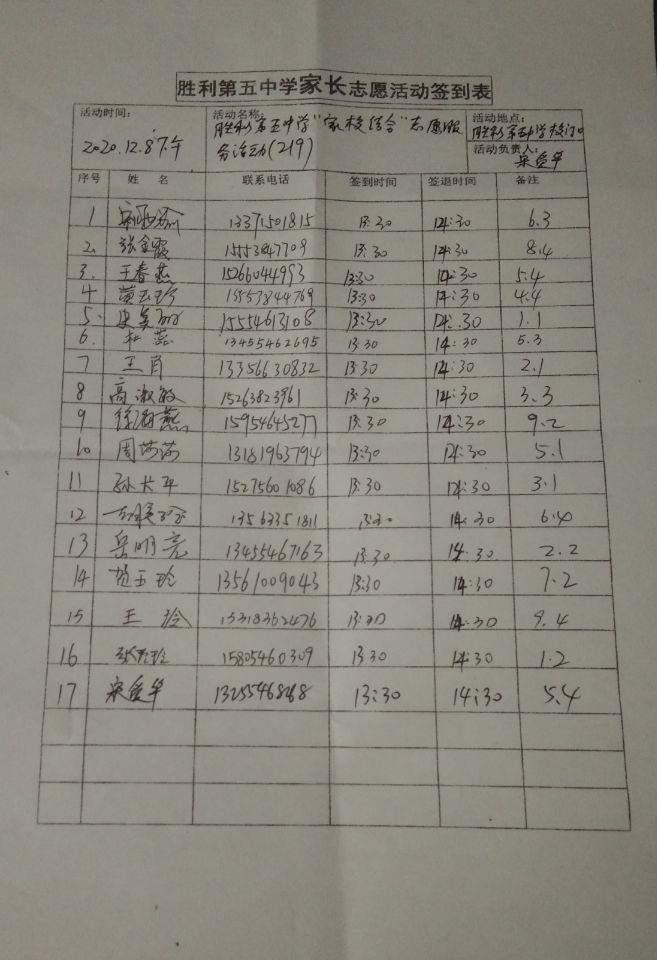 胜利第五中学家长志愿活动签到表
活动时间: 活动名称: 活动地点:
2020.12.8下午 胜利第五中学"家校结合"志愿服务活动(219) 胜利第五中学校门口
活动负责人: 宋爱华
序号 姓 名 联系电话 签到时间 签退时间 备注
1 13371501815 13:30 14:30 6.3
2. 张金霞 13:30 14:30 8.4
3. 王春燕 15266044993 13:30 14:30 5.4
4 黄玉珍 15557844769 13:30 14:30 4.4
5. 15554613108 13:30 14:30 1.1
6. 杜蕊 13455462695 13:30 14:30 5.3
7 王肖 13356630832 13:30 14:30 2.1
8 高淑敏 15263823961 13:30 14:30 3.3
9 15954645277 13:30 14:30 9.2
10 周萍萍 13181963794 13:30 14:30 5.1
11 孙大平 15275601086 13:30 14:30 3.1
12 13563351811 13:30 14:30 6.4
13 岳明亮 13455467163 13:30 14:30 2.2
14 贺玉玲 13561009043 13:30 14:30 7.2
15 王玲 15318362476 13:30 14:30 9.4
16 15805460309 13:30 14:30 1.2
17 宋爱华 13255468268 13:30 14:30 5.4